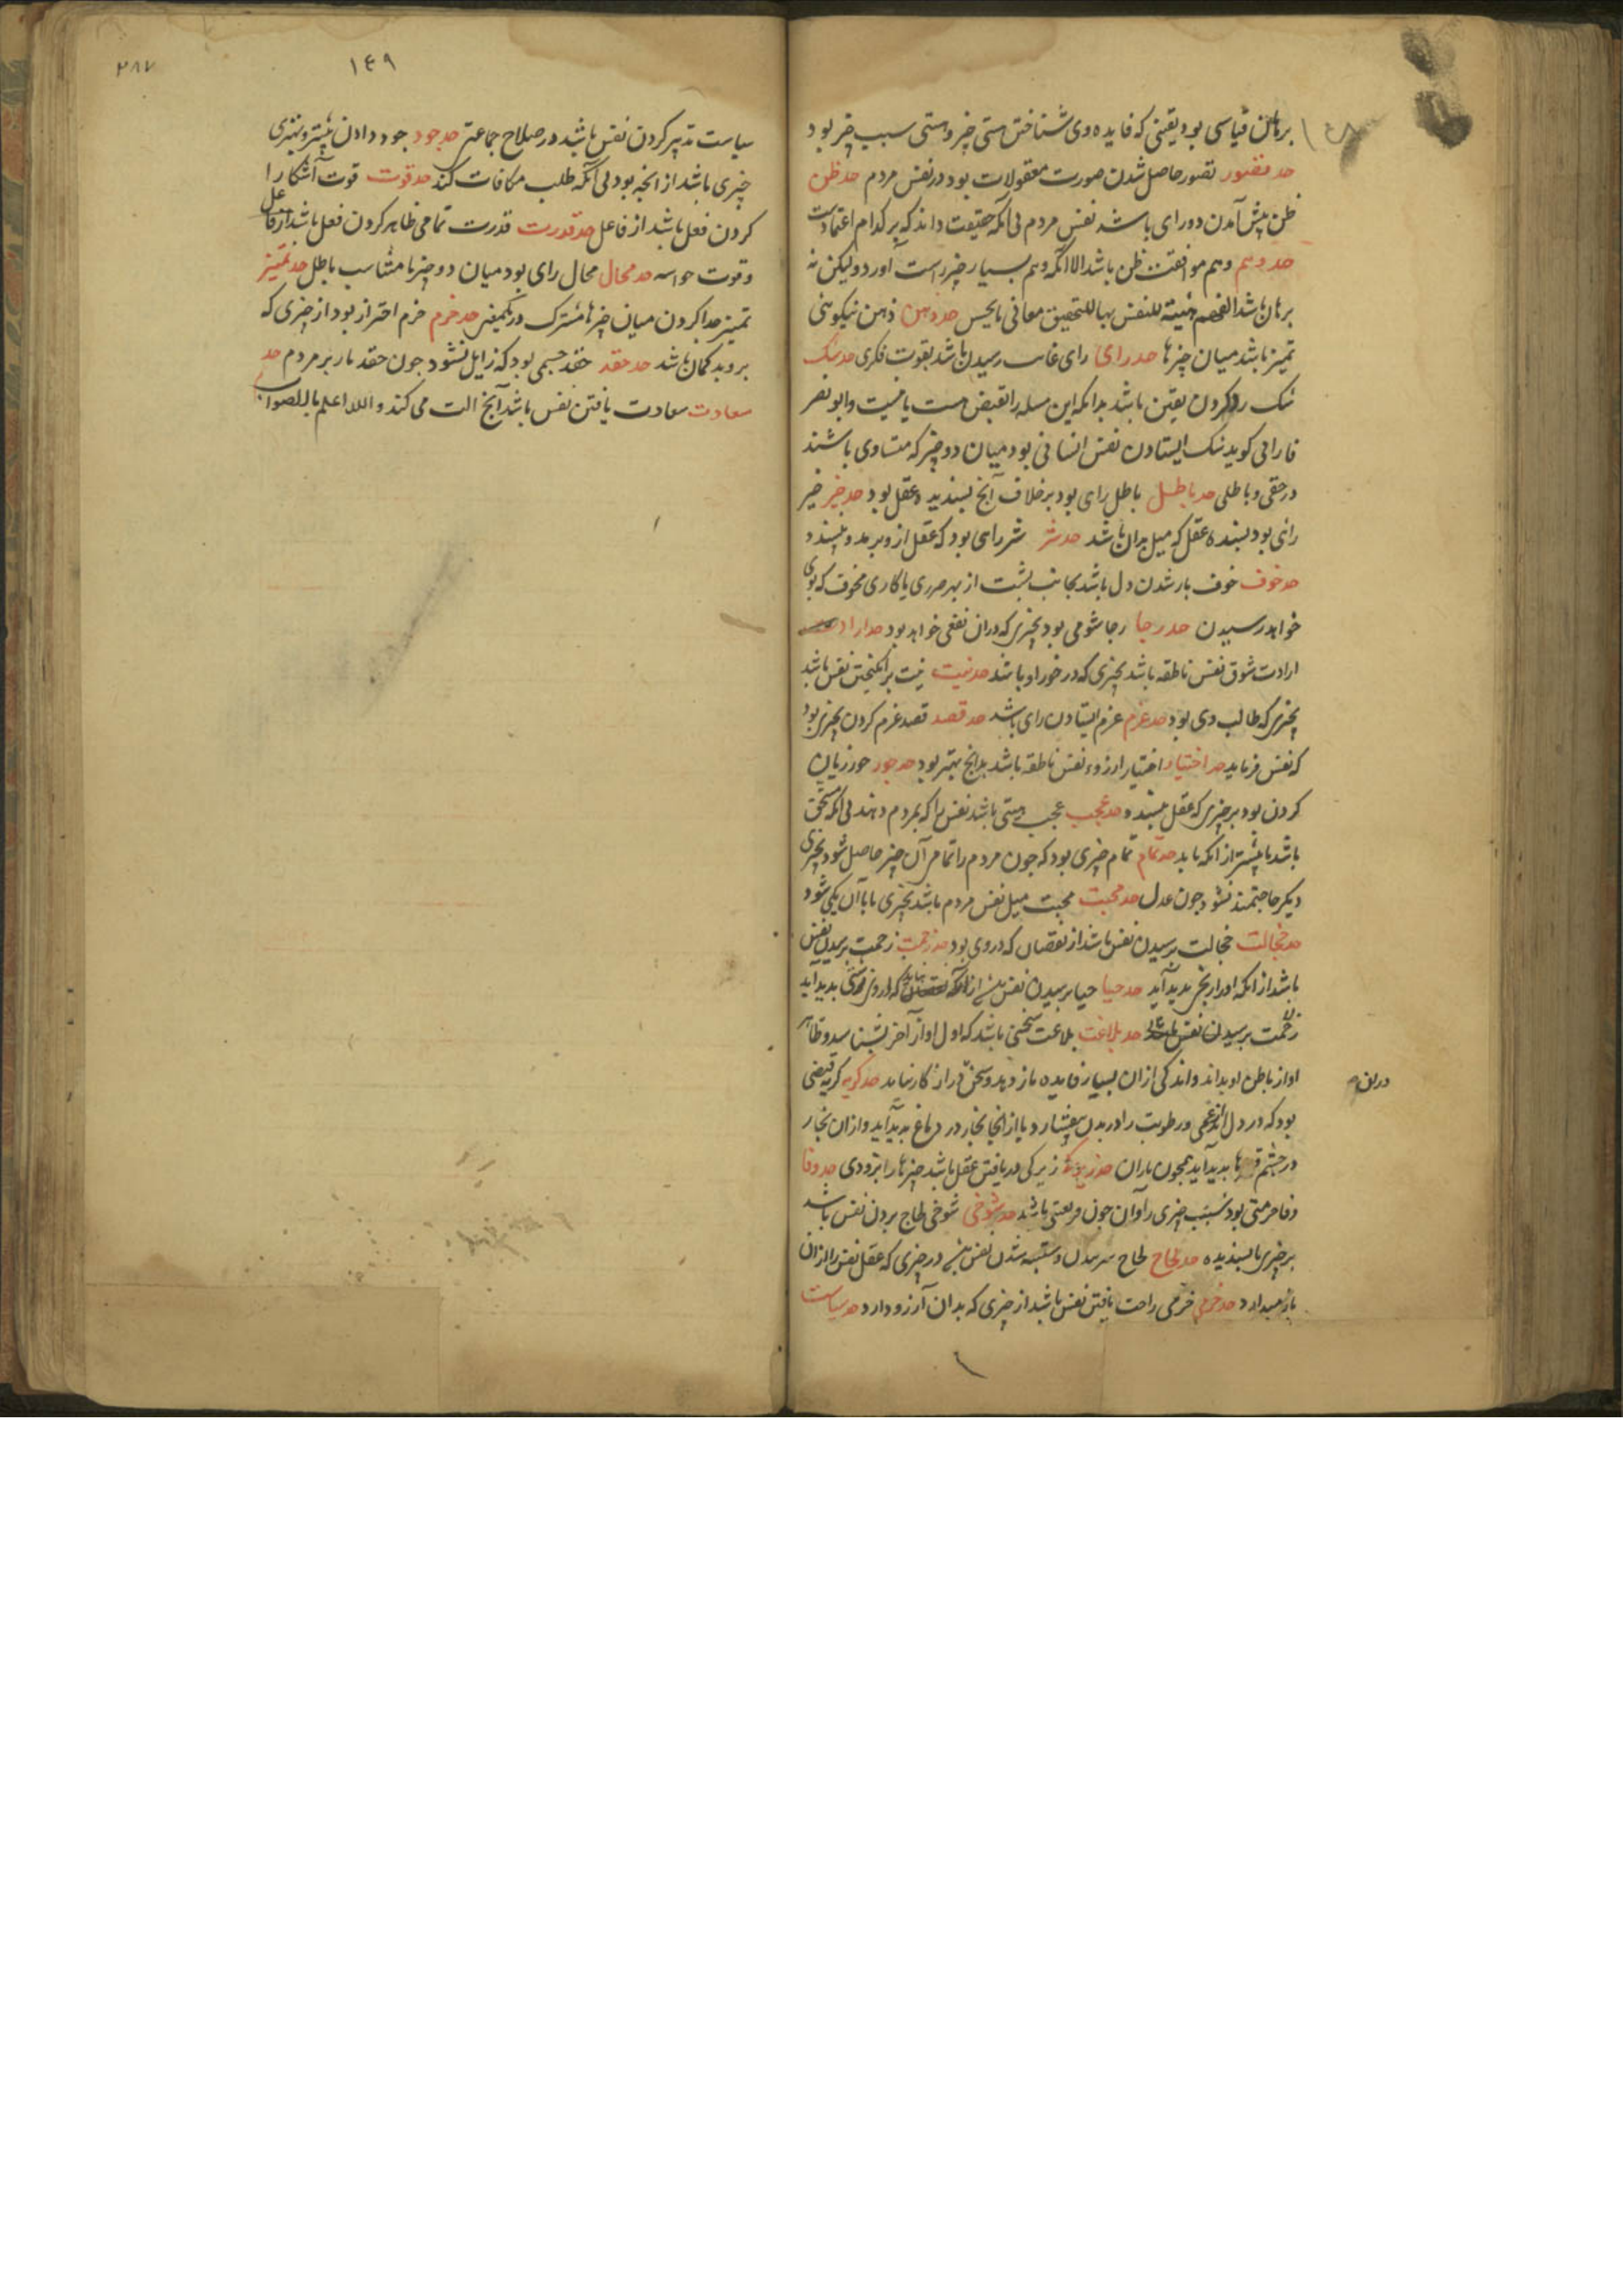 ١٤٨
برهان قیاسی بود یقینی که فایده وی شناختن هستی چیز و هستی سبب چیز بود
حد تصور تصور حاصل شدن صورت معقولات بود در نفس مردم حد ظن
ظن پیش آمدن دو رای باشد نفس مردم بی آنکه حقیقت داند که بر کدام اعتمادست
حد وهم وهم موافقت ظن باشد الا آنکه وهم بسیار چیز راست آورد و لیکن نه
برهان باشد الفهم هیئة للنفس بها للتحقیق معانی بالحس حد ذهن ذهن نیکویی
تمیز باشد میان چیزها حد رای رای غایت رسیدن باشد بقوت فکری حد شک
شک رد کردن یقین باشد بدانکه این مسله را نقیض هست یا نیست و ابو نصر
فارابی کوید شک ایستادن نفس انسانی بود میان دو چیز که متساوی باشند
در حقی و باطلی حد باطل باطل رای بود بر خلاف آنج پسندیده عقل بود حد خیر خیر
رایی بود پسنده عقل که میل بدان باشد حد شر شر رایی بود که عقل ازو برمد و نپسندد
حد خوف خوف باز شدن دل باشد بجانب پشت از بهر ضرری یا کاری مخوف که بوی
خواهد رسیدن حد رجا رجا شومی بود بچیزی که در آن نفعی خواهد بود حد ارادت
ارادت شوق نفس ناطقه باشد بچیزی که در خور او باشد حد نیت نیت برانگیختن نفس باشد
بچیزی که طالب وی بود حد عزم عزم ایستادن رای باشد حد قصد قصد عزم کردن بچیزی بود
که نفس فرماید حد اختیار اختیار ارزوء نفس ناطقه باشد بدانج بهتر بود حد جور جور زیان
کردن بود بر چیزی که عقل نپسندد حد عجب عجب هستی باشد نفس را که بمردم دهند بی آنکه مستحق
باشد یا بیشتر از آنکه باید حد تمام تمام چیزی بود که جون مردم را تمام آن چیز حاصل شود بچیزی
دیکر حاجتمند نشود جون عدل حد محبت محبت میل نفس مردم باشد بچیزی تا با آن یکی شود
حد خجالت خجالت برسیدن نفس باشد از نقصان که در وی بود حد زحمت زحمت برسیدن نفس
باشد از آنکه او را رنج بدید آید حد حیا حیا برسیدن نفس باشد از آنکه که از وی بدید آید
زحمت برسیدن نفس حد بلاغت بلاغت سخنی باشد که اول او از آخر بشناسد و ظاهر
او از باطن او بداند و اندکی از آن بسیار فایده باز دهد و سخن دراز کار نیاید حد کریه کریه قبضی
در ان
بود که در دل از غمی و رطوبت را در بدن بفشارد یا از آنجا بخار در دماغ بدید آید و از آن بخار
در چشم قطرها بدید آید همچون باران حد زیرکی زیرکی دریافتن عقل باشد چیزها را بزودی حد وفا
وفا حرمتی بود بسبب چیزی را و آن جون فریضتی باشد حد شوخی شوخی لجاج بردن نفس باشد
بر چیزی ناپسندیده حد لجاج لجاج و ستیهنده شدن نفس باشد در چیزی که عقل نفس را از آن
باز میدارد حد خرمی خرمی راحت یافتن نفس باشد از چیزی که بدان آرزو دارد حد سیاست
٢٨٧
١٤٩
سیاست تدبیر کردن نفس باشد در صلاح جماعت حد جود جود دادن بیشتر و بهتری
چیزی باشد از آنچه بود بی آنکه طلب مکافات کند حد قوت قوت آشکارا
کردن فعل باشد از فاعل حد قدرت قدرت تمامی ظاهر کردن فعل باشد از فاعل
و قوت حواسه حد محال محال رای بود میان دو چیز نا متناسب باطل حد تمیز
تمیز جدا کردن میان چیزها مشترک در یکمعنی حد حزم حزم احتراز بود از چیزی که
برو بد کمان باشد حد حقد حقد خشمی بود که زایل نشود جون حقد مار بر مردم حد
سعادت سعادت یافتن نفس باشد آنج الت می کند و الله اعلم بالصواب